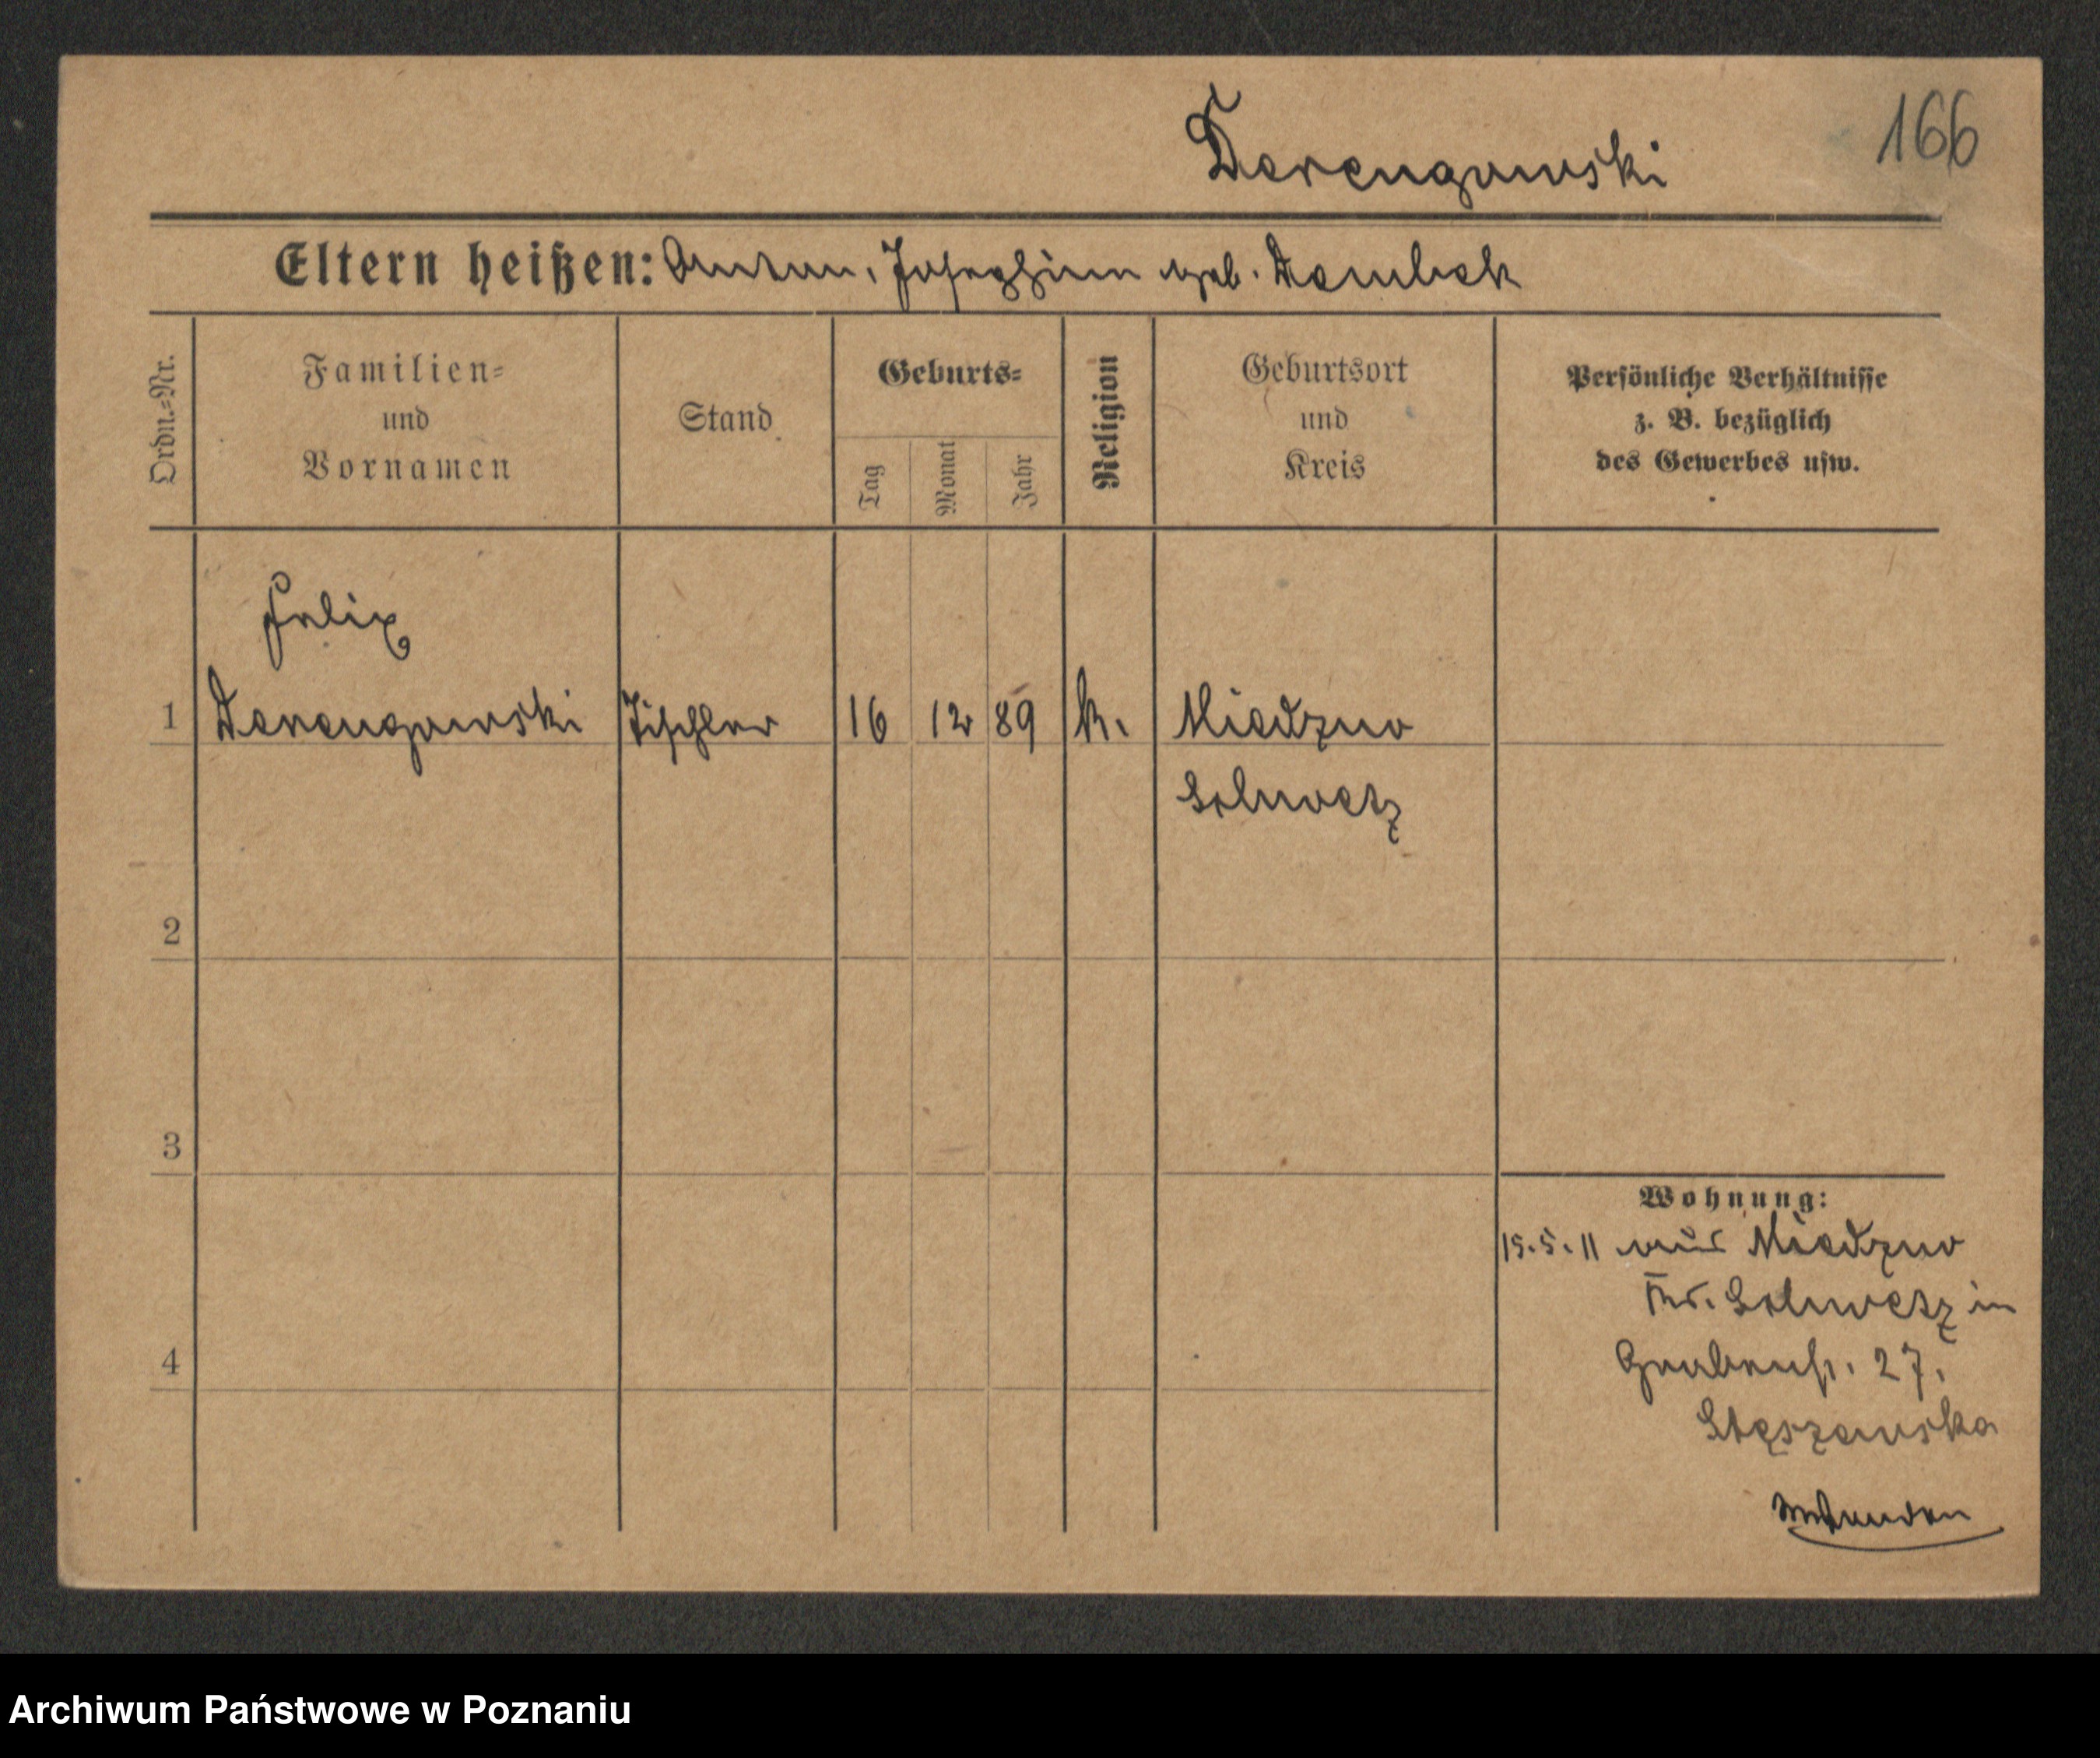 Derengowski
166
Eltern heißen: Anton, Josephine geb. Dembek
Ordn.=Nr.
Familien=
und
Vornamen
Stand
Geburts=
Tag
Monat
Jahr
Religion
Geburtsort
und
Kreis
Persönliche Verhältnisse
z. B. bezüglich
des Gewerbes usw.
Felix
1 Derengowski Tischler 16 12 89 k. Miedzno
Schwetz
2
3
4
Wohnung:
15.5.11 aus Miedzno
Krs. Schwetz in
Grabenstr. 27.
Stęszewska
Archiwum Państwowe w Poznaniu